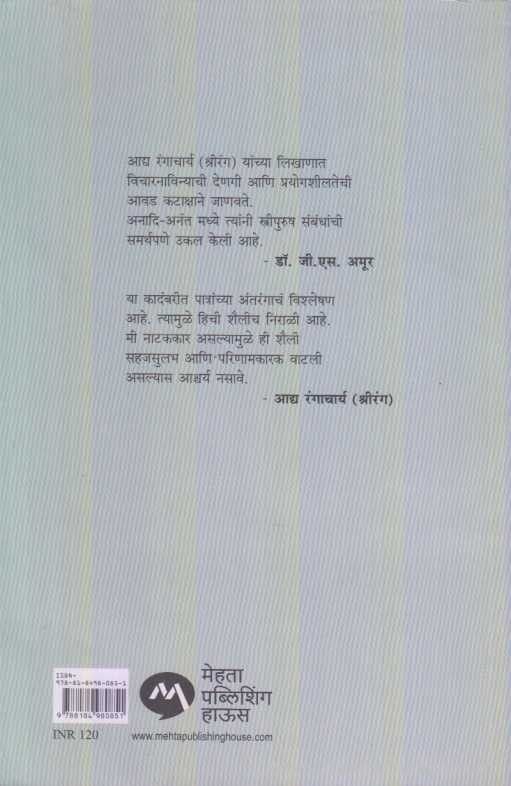 आद्य रंगाचार्य (श्रीरंग) यांच्या लिखाणात
विचारनाविन्याची देणगी आणि प्रयोगशीलतेची
आवड कटाक्षाने जाणवते.
अनादि-अनंत मध्ये त्यांनी स्त्रीपुरुष संबंधांची
समर्थपणे उकल केली आहे.
- डॉ. जी.एस. अमूर
या कादंबरीत पात्रांच्या अंतरंगाचं विश्लेषण
आहे. त्यामुळे हिची शैलीच निराळी आहे.
मी नाटककार असल्यामुळे ही शैली
सहजसुलभ आणि परिणामकारक वाटली
असल्यास आश्चर्य नसावे.
- आद्य रंगाचार्य (श्रीरंग)
ISBN-
978-81-8498-085-1
9 788184 980851
INR 120
मेहता
पब्लिशिंग
हाऊस
www.mehtapublishinghouse.com